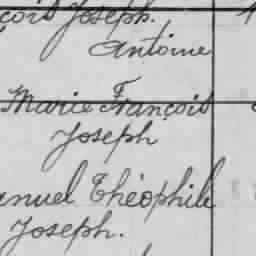 çois Joseph.
Antoine
Marie François
Joseph
anuel Théophile
Joseph.